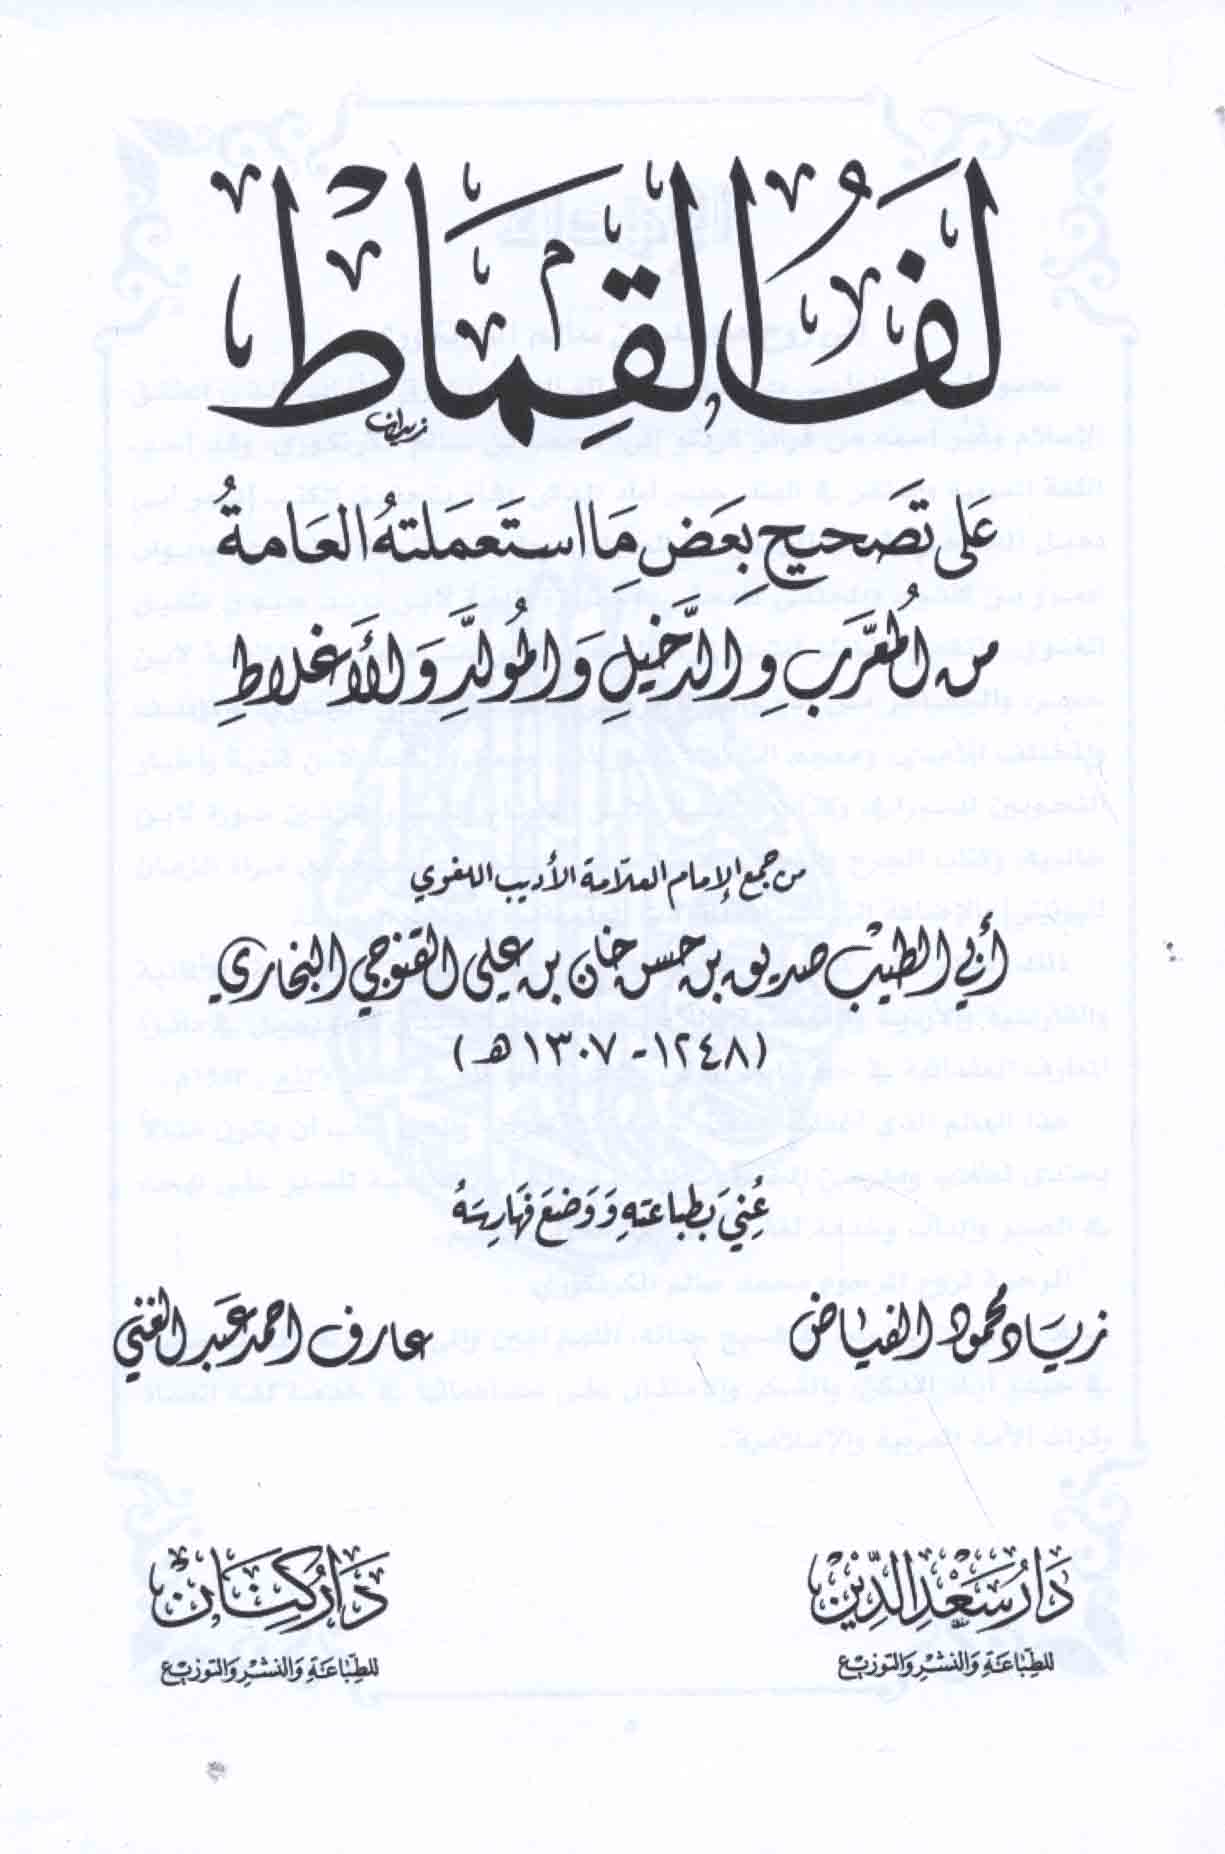 لَفُّ القِمَاطْ
عَلى تَصحيحِ بَعَضِ مَا استَعمَلتهُ العَامةُ
من المُعَرَّبِ وَالدَّخيلِ وَالمُولَّدِ وَالأَغلاطِ
من جمع الإمام العلّامة الأديب اللغوي
أبي الطيّب صديق بن حسن خان بن علي القنوجي البخاري
(١٢٤٨ - ١٣٠٧ هـ)
عُنِيَ بطباعتهِ وَوَضعَ فهارِسَهُ
زياد محمود الفياض
عارف احمد عبد الغني
دَارُ سَعْدِ الدِّين
للطِبَاعَةِ وَالنَشْرِ وَالتوزيع
دَارُ كِنَان
للطِبَاعَةِ وَالنَشْرِ وَالتوزيع